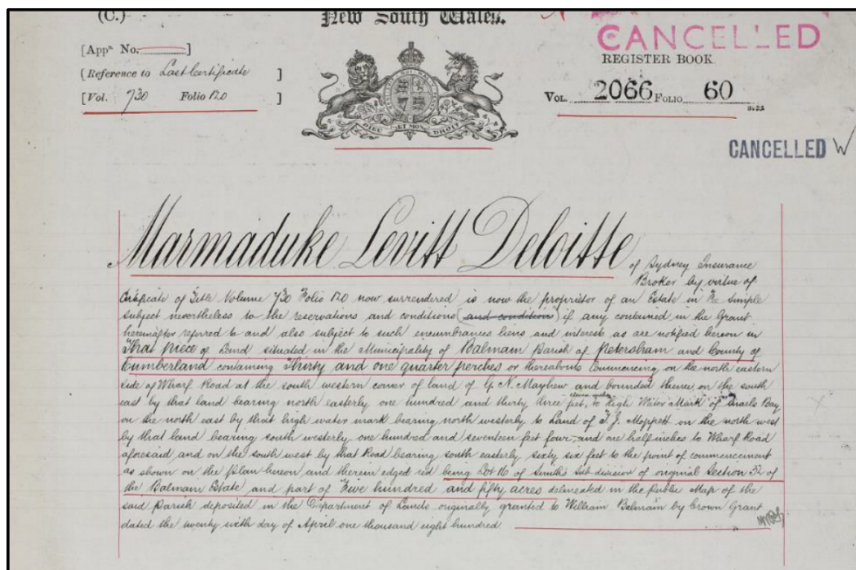 (C.)
New South Wales.
CANCELLED
[Appn. No. ]
REGISTER BOOK.
[Reference to Last Certificate ]
[Vol. 730 Folio 120 ]
VOL. 2066 FOLIO 60
DIEU ET MON DROIT
CANCELLED W
Marmaduke Levitt Deloitte of Sydney Insurance
Broker by virtue of
Certificate of Title Volume 730 Folio 120 now surrendered is now the proprietor of an Estate in Fee Simple
subject nevertheless to the reservations and conditions (and condition) if any contained in the Grant
hereinafter referred to and also subject to such encumbrances liens and interests as are notified hereon in
That piece of Land situated in the Municipality of Balmain Parish of Petersham and County of
Cumberland containing Thirty and one quarter perches or thereabouts Commencing on the north eastern
side of Wharf Road at the south western corner of land of G. N. Mayhew and bounded thence on the south
east by that land bearing north easterly one hundred and thirty three feet, to High Water Mark of Snails Bay
on the north east by that high water mark bearing north westerly to land of T. J. Moppett on the north west
by that land bearing south westerly one hundred and seventeen feet four and one half inches to Wharf Road
aforesaid and on the south west by that Road bearing south easterly sixty six feet to the point of commencement
as shown on the plan hereon and therein edged red being Lot 16 of Smith's sub-division of original Section 32 of
the Balmain Estate and part of Five hundred and fifty acres delineated in the Public Map of the
said Parish deposited in the Department of Lands originally granted to William Balmain by Crown Grant
dated the twenty sixth day of April one thousand eight hundred